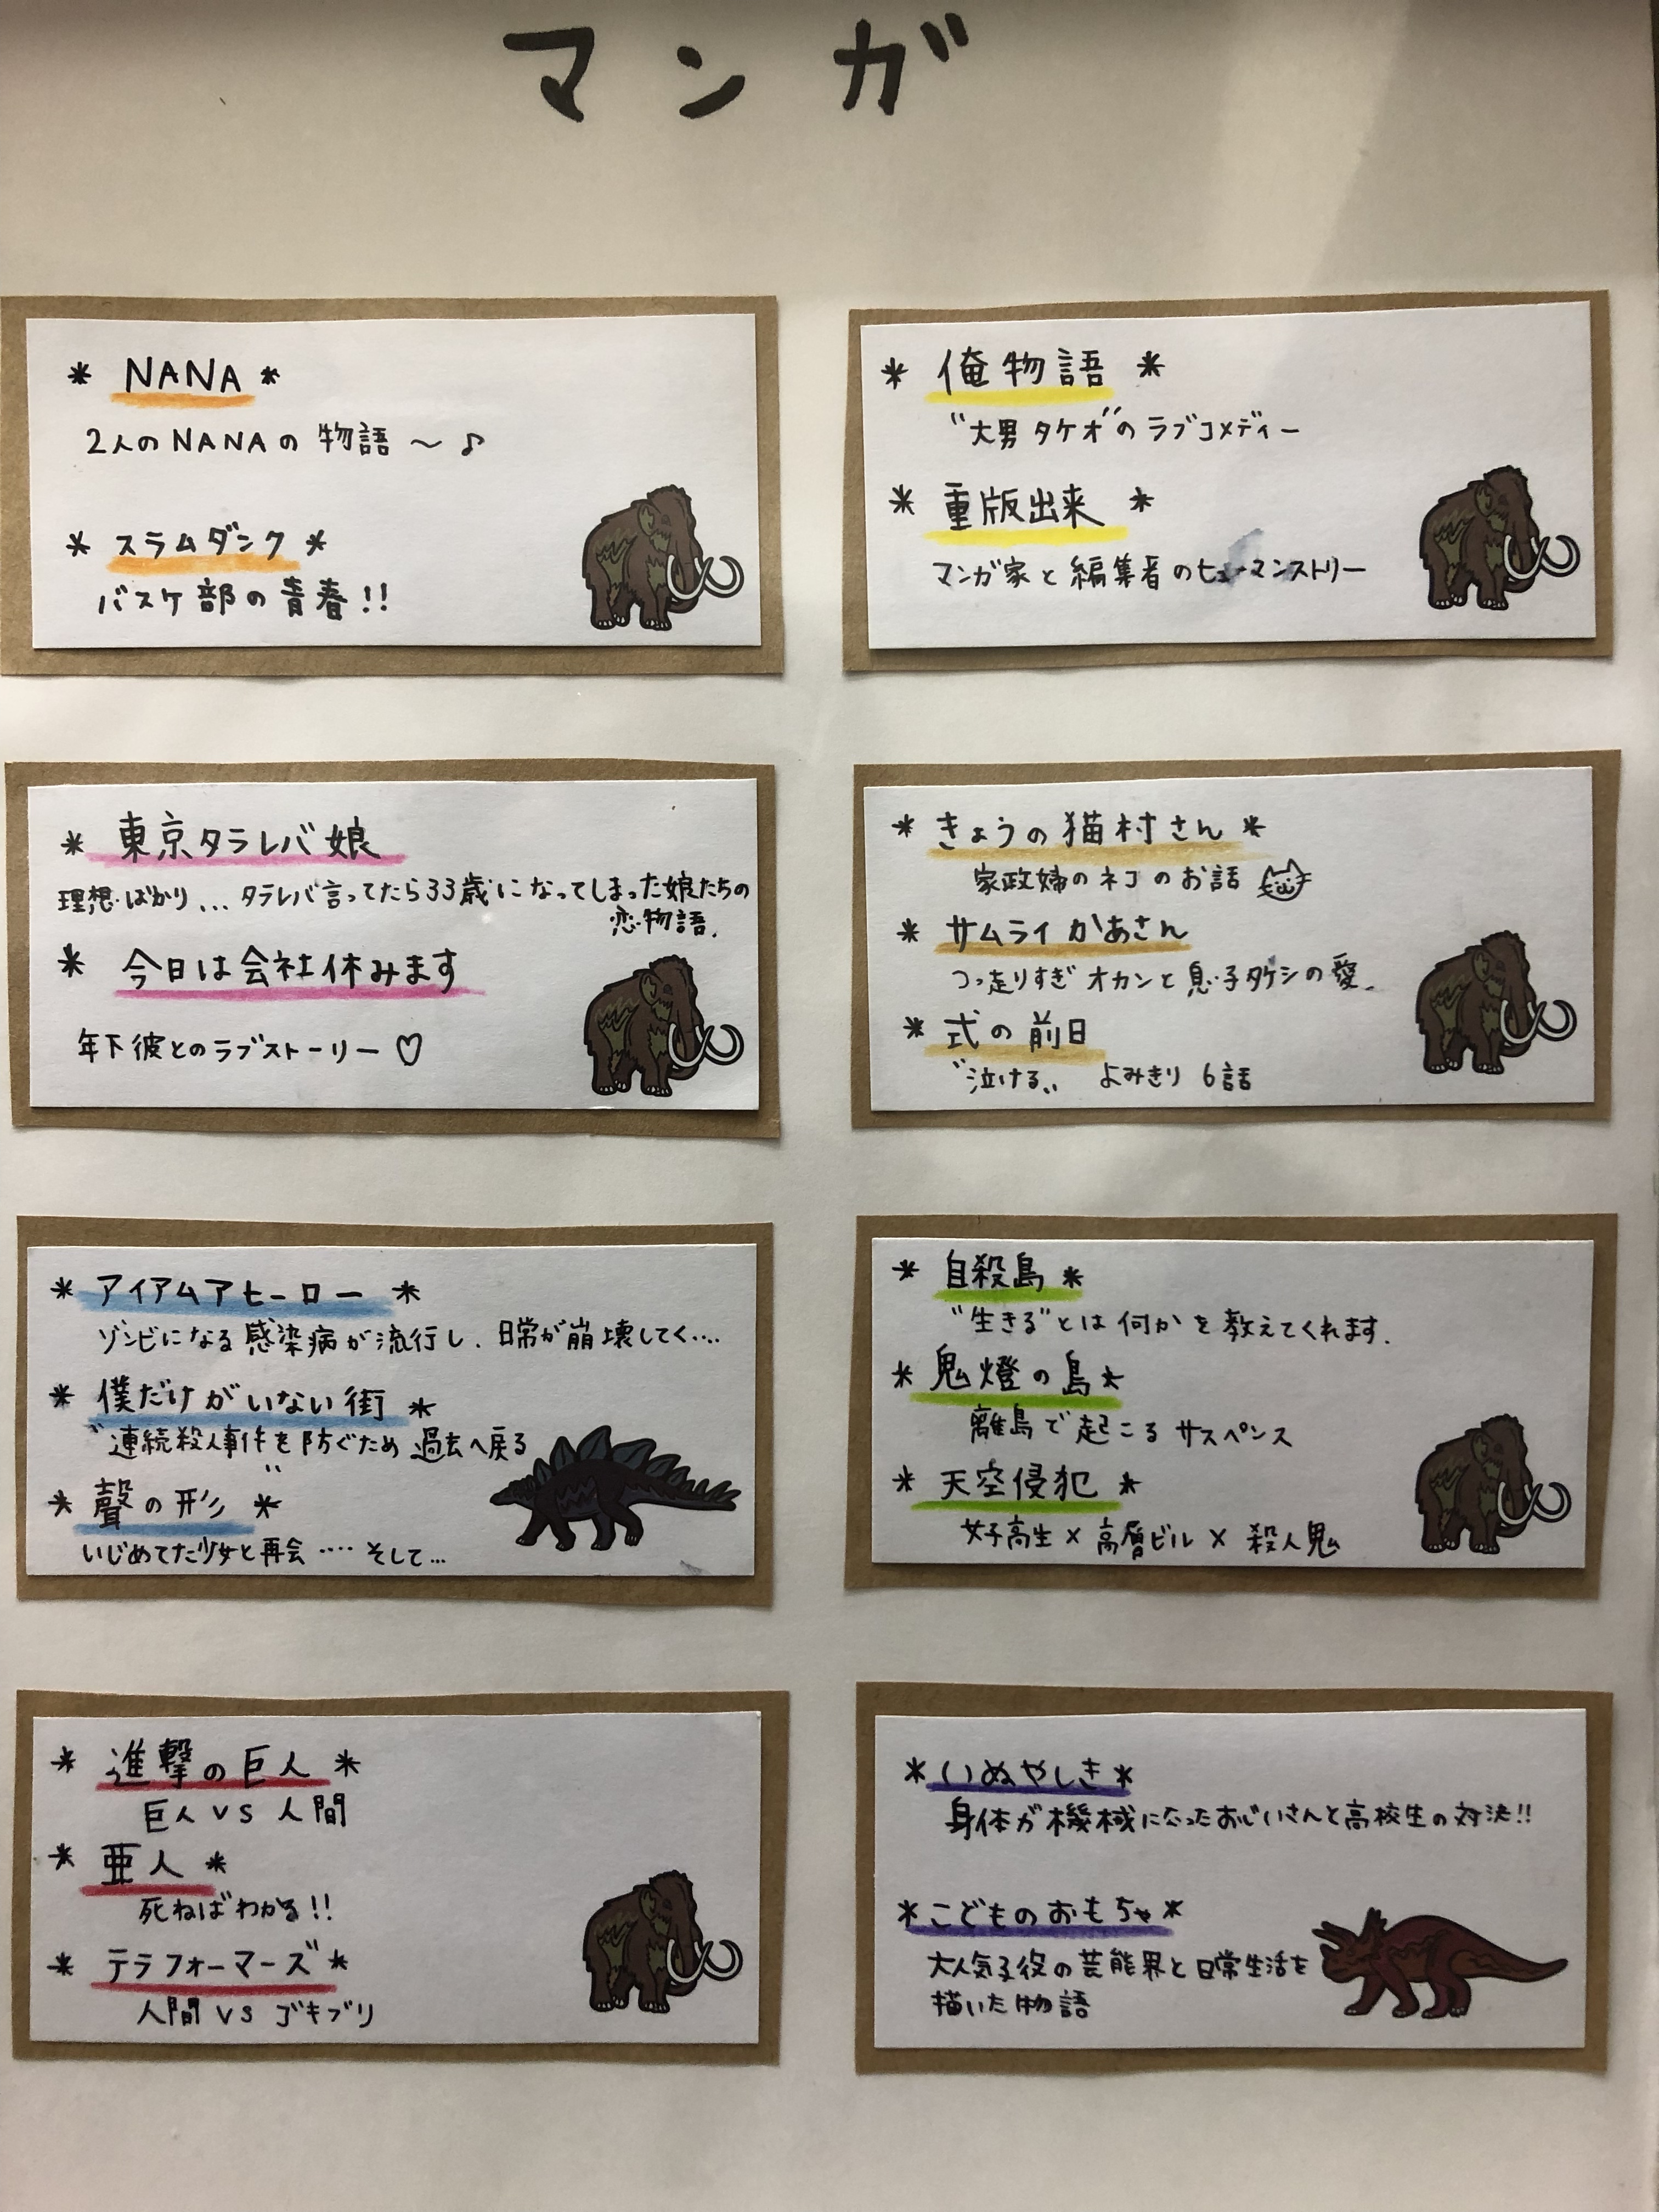 マンガ
* NANA *
2人のNANAの物語〜♪
* スラムダンク *
バスケ部の青春!!
* 俺物語 *
"大男タケオ"のラブコメディー
* 重版出来 *
マンガ家と編集者のヒューマンストリー
* 東京タラレバ娘
理想ばかり...タラレバ言ってたら33歳になってしまった娘たちの
恋物語.
* 今日は会社休みます
年下彼とのラブストーリー♡
* きょうの猫村さん *
家政婦のネコのお話
* サムライかあさん
つっ走りすぎオカンと息子タケシの愛.
* 式の前日
"泣ける" よみきり 6話
* アイアムアヒーロー *
ゾンビになる感染病が流行し、日常が崩壊してく....
* 僕だけがいない街 *
"連続殺人事件を防ぐため過去へ戻る"
* 聲の形 *
いじめてた少女と再会....そして...
* 自殺島 *
"生きる"とは何かを教えてくれます.
* 鬼燈の島 *
離島で起こるサスペンス
* 天空侵犯 *
女子高生×高層ビル×殺人鬼
* 進撃の巨人 *
巨人VS人間
* 亜人 *
死ねばわかる!!
* テラフォーマーズ *
人間VSゴキブリ
* いぬやしき *
身体が機械になったおじいさんと高校生の対決!!
* こどものおもちゃ *
大人気子役の芸能界と日常生活を
描いた物語